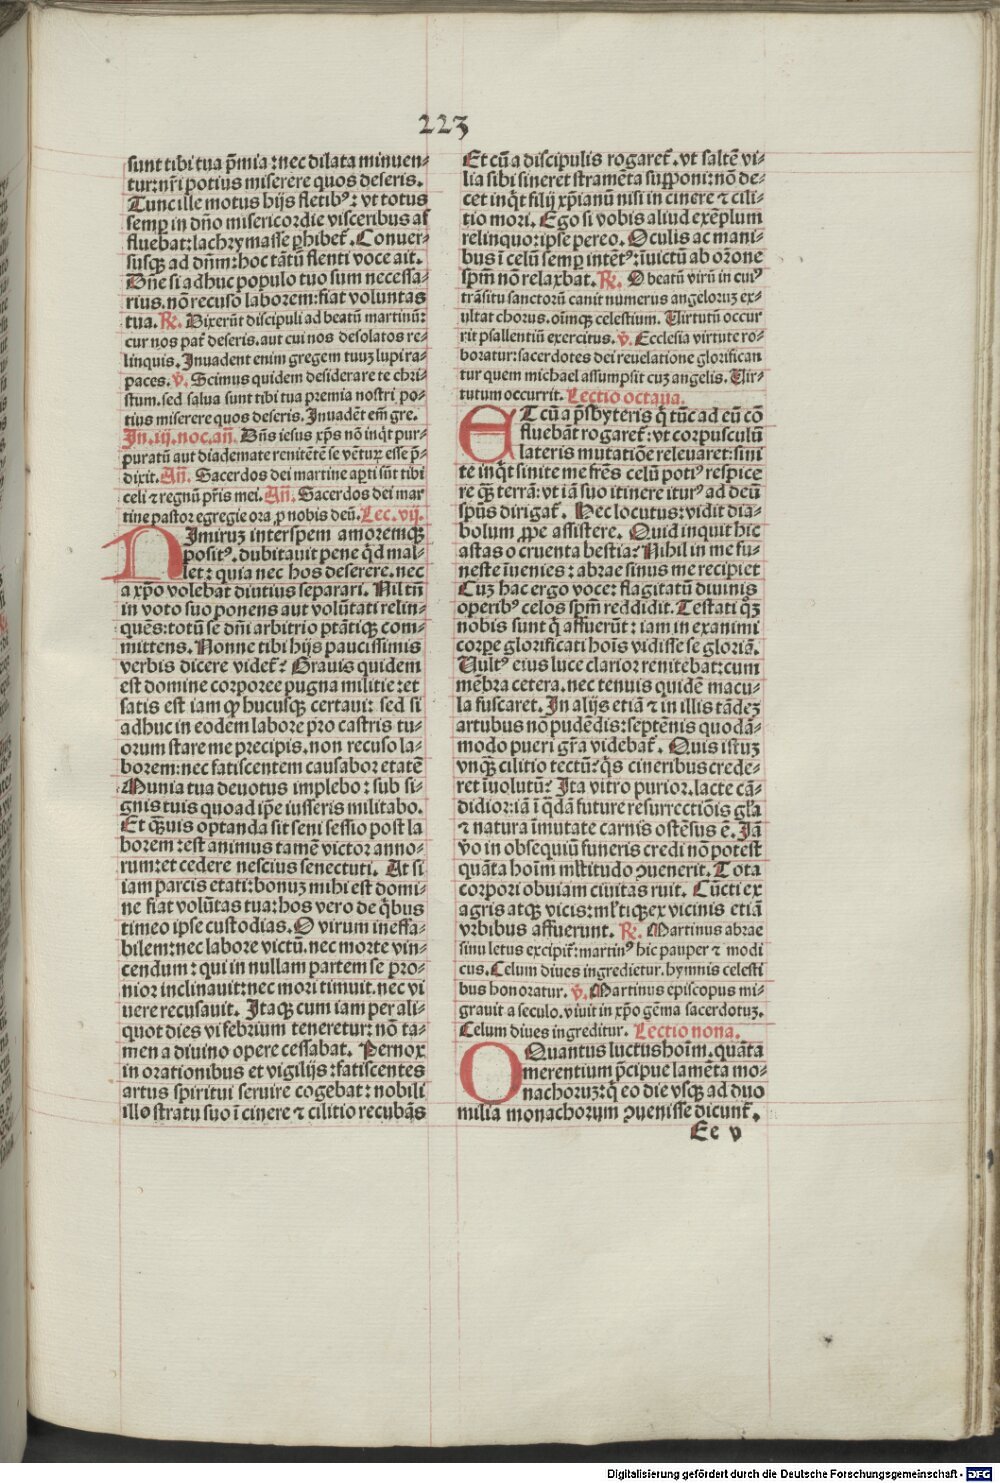 223
sunt tibi tua p̄mia: nec dilata minuen⸗
tur: nr̄i potius miserere quos deseris.
Tunc ille motus hijs fletibꝰ: vt totus
semꝑ in dn̄o misericordie visceribus af
fluebat: lachrymasse ꝑhibet᷑. Conuer⸗
susqꝫ ad dn̄m: hoc tātū flenti voce ait.
Dn̄e si adhuc populo tuo sum necessa⸗
rius. nō recuso laborem: fiat voluntas
tua. ℟. Dixerūt discipuli ad beatū martinū:
cur nos pat᷑ deseris. aut cui nos desolatos re⸗
linquis. Inuadent enim gregem tuuꝫ lupi ra⸗
paces. ꝟ. Scimus quidem desiderare te chri⸗
stum. sed salua sunt tibi tua premia nostri po⸗
tius miserere quos deseris. Inuadēt em̄ gre.
In. iij. noc. an̄. Dn̄s iesus xp̄s nō inq̄t pur⸗
puratū aut diademate renitētē se vētuꝝ esse p̄⸗
dixit. An̄. Sacerdos dei martine aꝑti sūt tibi
celi ⁊ regnū pr̄is mei. An̄. Sacerdos dei mar
tine pastor egregie ora ꝓ nobis deū. Lec. vij.
NImiruꝫ inter spem amoremqꝫ
positꝰ. dubitauit pene q̄d mal⸗
let: quia nec hos deserere. nec
a xp̄o volebat diutius separari. Nil tn̄
in voto suo ponens aut volūtati relin⸗
quēs: totū se dn̄i arbitrio ptātiqꝫ com⸗
mittens. Nonne tibi hijs paucissimis
verbis dicere videt᷑? Grauis quidem
est domine corporee pugna militie: et
satis est iam ꝙ hucusqꝫ certaui: sed si
adhuc in eodem labore pro castris tu⸗
orum stare me precipis. non recuso la⸗
borem: nec fatiscentem causabor etatē
Munia tua deuotus implebo: sub si⸗
gnis tuis quoad ip̄e iusseris militabo.
Et qꝫuis optanda sit seni sessio post la
borem: est animus tamē victor anno⸗
rum: et cedere nescius senectuti. At si
iam parcis etati: bonuꝫ mihi est domi⸗
ne fiat volūtas tua: hos vero de q̄bus
timeo ipse custodias. O virum ineffa⸗
bilem: nec labore victū. nec morte vin⸗
cendum: qui in nullam partem se pro⸗
nior inclinauit: nec mori timuit. nec vi
uere recusauit. Itaqꝫ cum iam per ali⸗
quot dies vi febrium teneretur: nō ta⸗
men a diuino opere cessabat. Pernox
in orationibus et vigilijs: fatiscentes
artus spiritui seruire cogebat: nobili
illo stratu suo ī cinere ⁊ cilitio recubās
Et cū a discipulis rogaret᷑. vt saltē vi⸗
lia sibi sineret stramēta supponi: nō de⸗
cet inq̄t filij xp̄ianū nisi in cinere ⁊ cili⸗
tio mori. Ego si vobis aliud exēplum
relinquo: ipse pereo. Oculis ac mani⸗
bus ī celū semꝑ intētꝰ: īuictū ab or̄one
spm̄ nō relaxbat. ℟. O beatū virū in cuiꝰ
trāsitu sanctorū canit numerus angeloruꝫ ex⸗
ultat chorus. oīmqꝫ celestium. Virtutū occur
rit psallentiū exercitus. ꝟ. Ecclesia virtute ro⸗
boratur: sacerdotes dei reuelatione glorifican
tur quem michael assumpsit cuꝫ angelis. Vir⸗
tutum occurrit. Lectio octaua.
ET cū a p̄sbyteris q̄ tūc ad eū cō
fluebāt rogaret᷑: vt corpusculū
lateris mutatiōe releuaret: sini
te inq̄t sinite me fr̄es celū potiꝰ respice
re qꝫ terrā: vt iā suo itinere iturꝰ ad deū
sp̄us dirigat᷑. Hec locutus: vidit dia⸗
bolum ꝓpe assistere. Quid inquit hic
astas o cruenta bestia? Nihil in me fu⸗
neste īuenies: abrae sinus me recipiet
Cuꝫ hac ergo voce: flagitatū diuinis
operibꝰ celos spm̄ reddidit. Testati qꝫ
nobis sunt q̄ affuerūt: iam in exanimi
corpe glorificati hoīs vidisse se gloriā.
Vultꝰ eius luce clarior renitebat: cum
mēbra cetera. nec tenuis quidē macu⸗
la fuscaret. In alijs etiā ⁊ in illis tādeꝫ
artubus nō pudēdis: septēnis quodā⸗
modo pueri gr̄a videbat᷑. Quis istuꝫ
vnqꝫ cilitio tectū? q̄s cineribus crede⸗
ret īuolutū? Ita vitro purior. lacte cā⸗
didior: iā ī q̄dā future resurrectiōis gl̄ia
⁊ natura īmutate carnis ostēsus ē. Iā
v̄o in obsequiū funeris credi nō potest
quāta hoīm ml̄titudo ꝯuenerit. Tota
corpori obuiam ciuitas ruit. Cūcti ex
agris atqꝫ vicis: ml̄tiqꝫ ex vicinis etiā
vrbibus affuerunt. ℟. Martinus abrae
sinu letus excipit᷑: martinꝰ hic pauper ⁊ modi
cus. Celum diues ingredietur. hymnis celesti
bus honoratur. ꝟ. Martinus episcopus mi⸗
grauit a seculo. viuit in xp̄o gēma sacerdotuꝫ.
Celum diues ingreditur. Lectio nona.
O Quantus luctus hoīm. quāta
merentium p̄cipue lamēta mo⸗
nachoruꝫ: q̄ eo die vsqꝫ ad duo
milia monachorum ꝯuenisse dicunt᷑.
Ee v
Digitalisierung gefördert durch die Deutsche Forschungsgemeinschaft - DFG